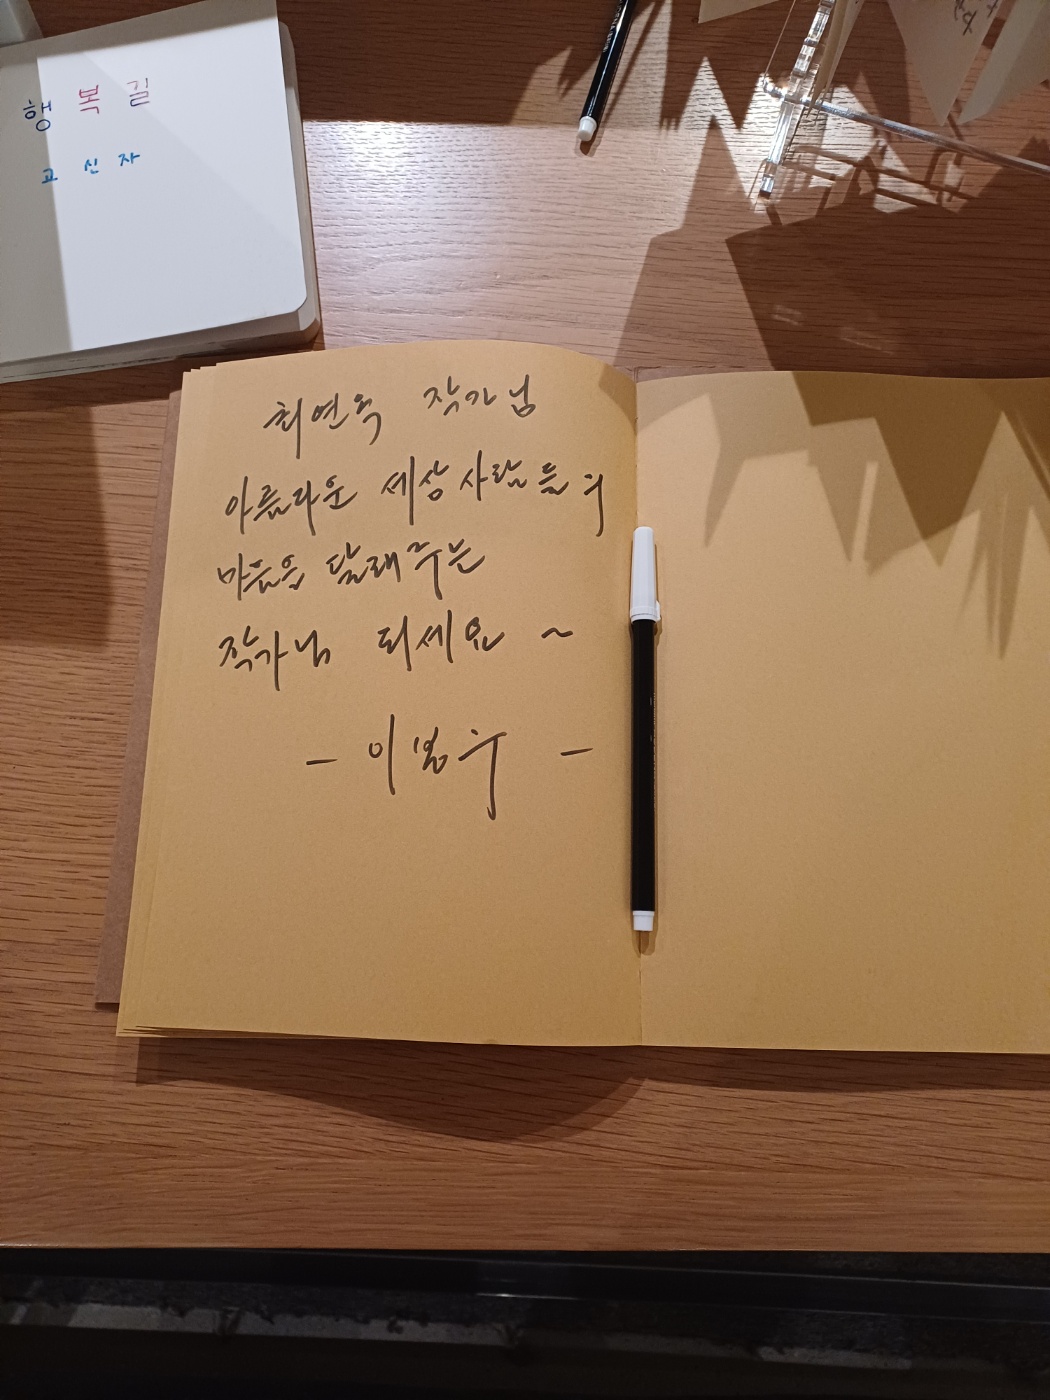 행 복 길
고 신 자
최연옥 작가님
아름다운 세상 사람들의
마음을 달래주는
작가님 되세요 ~
- 이범우 -